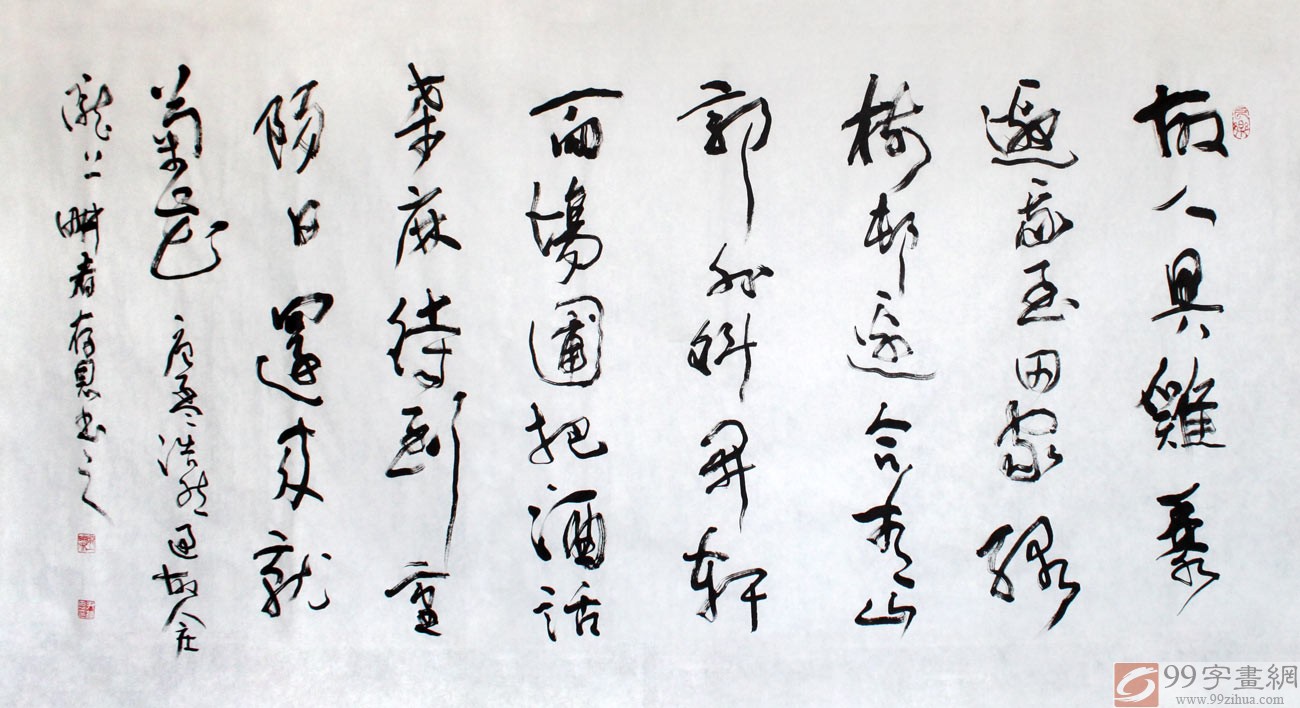 故人具雞黍
邀我至田家綠
樹邨邊合青山
郭外斜開軒
面場圃把酒話
桑麻待到重
陽日還來就
菊花 唐孟浩然過故人庄
隴上畊者存恩書之
99字畫網
www.99zihua.com